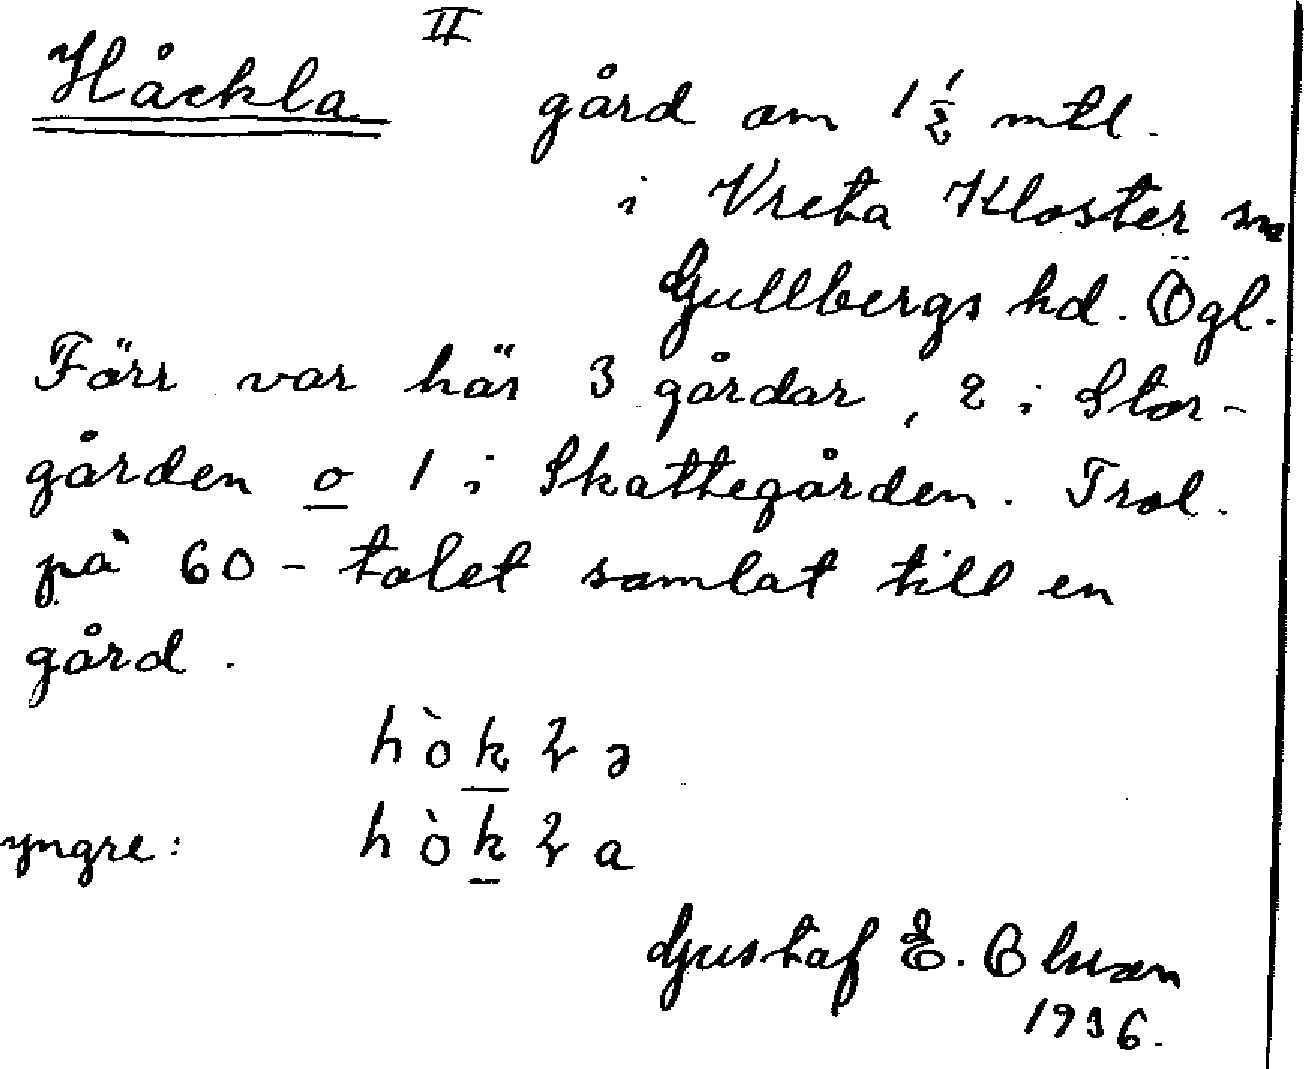 II
Håckla gård om 1 1/2 mtl.
i Vreta Kloster sn
Gullbergs hd. Ögl.
Förr var här 3 gårdar, 2 i Stor-
gården o 1 i Skattegården. Trol.
på 60-talet samlat till en
gård.
hòkɽə
yngre: hòkɽa
Gustaf E. Olsson
1936.